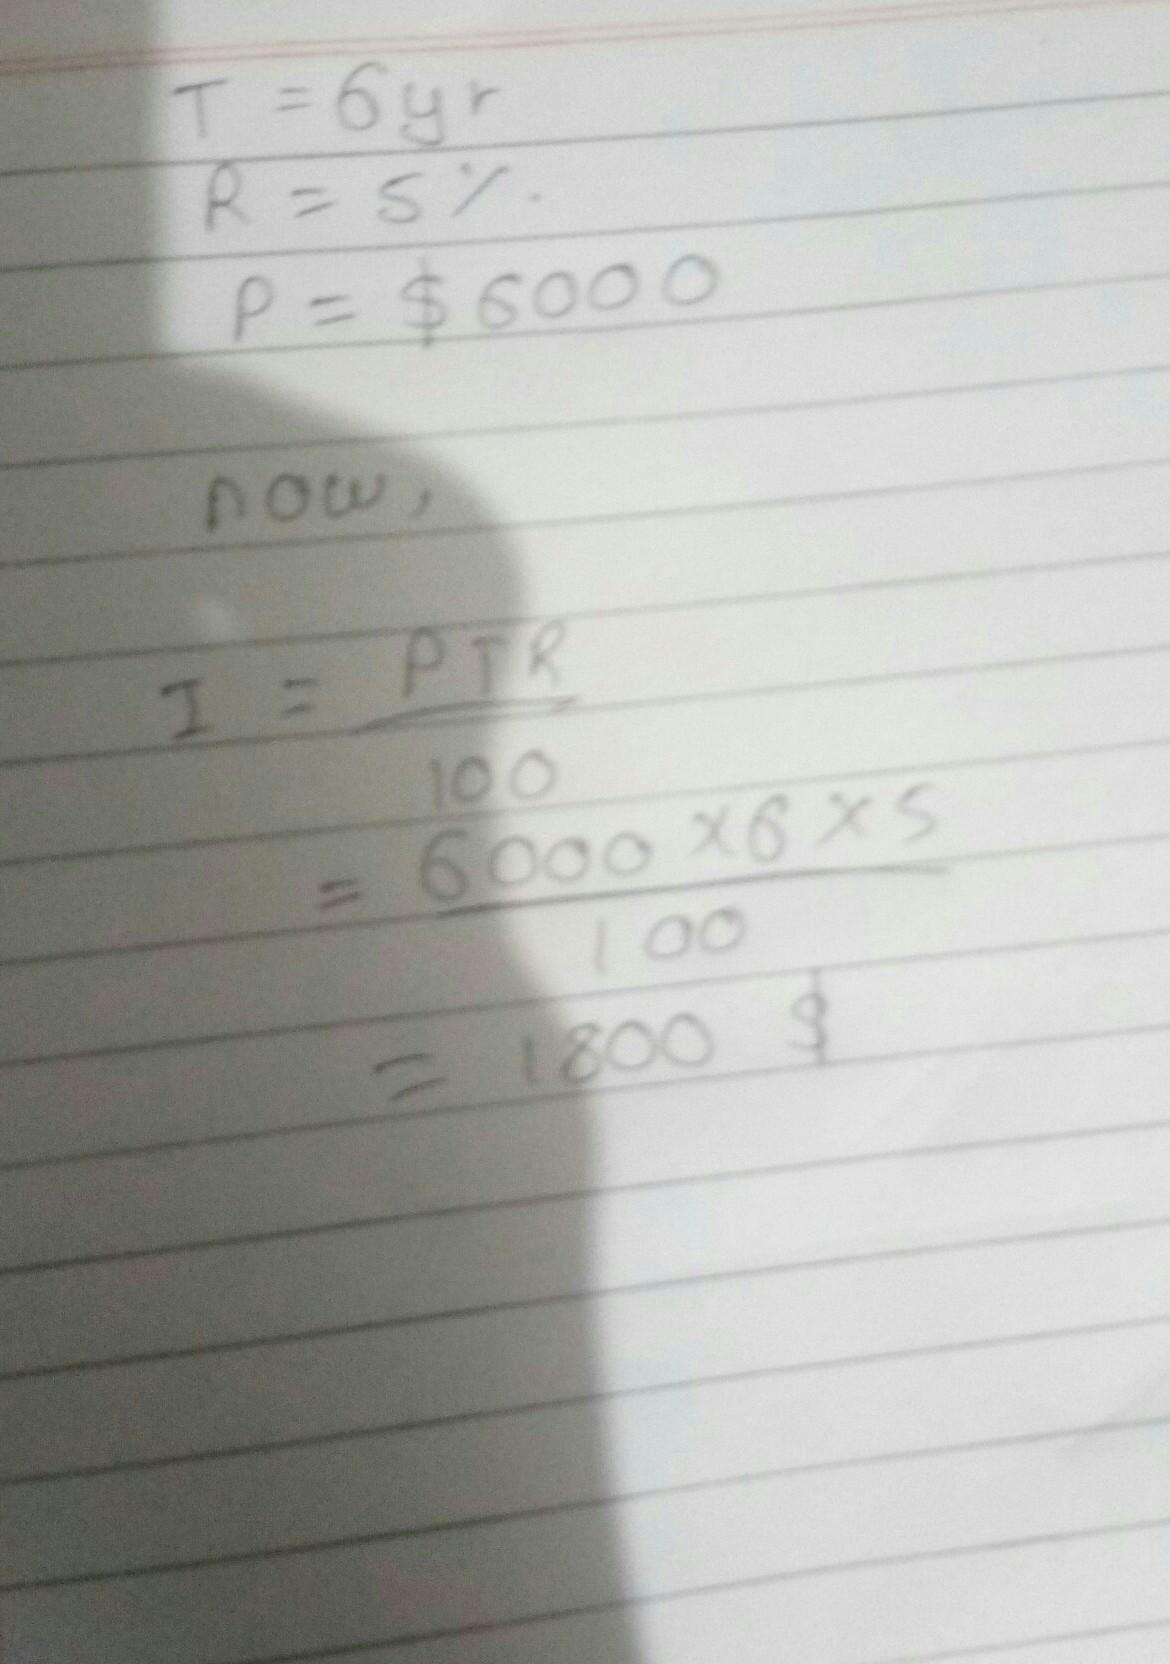 T = 6yr
R = 5%.
P = $6000
now,
I = PTR
100
= 6000 × 6 × 5
100
= 1800 $